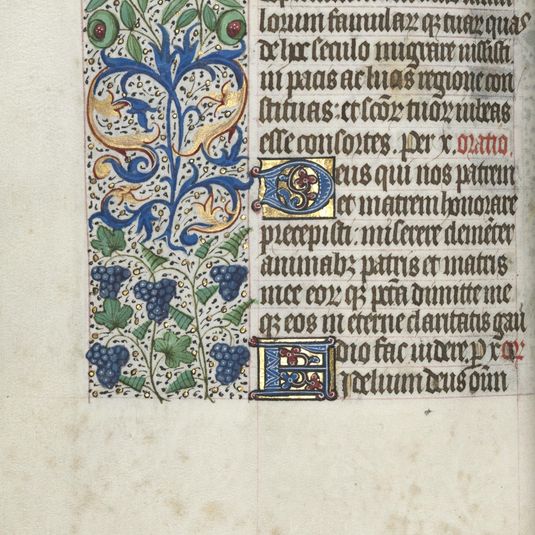 lorum famular qz tuar quas
de hoc seculo migrare iussisti
in pacis ac lucis regione con
stituas: et scor tuor iubeas
esse consortes. Per x. oratio.
Deus qui nos patrem
et matrem honorare
precepisti: miserere clementer
animabz patris et matris
mee eor qz pcta dimitte me
qz eos in eterne claritatis gau
dio fac videre. p x. or
Fidelium deus oim